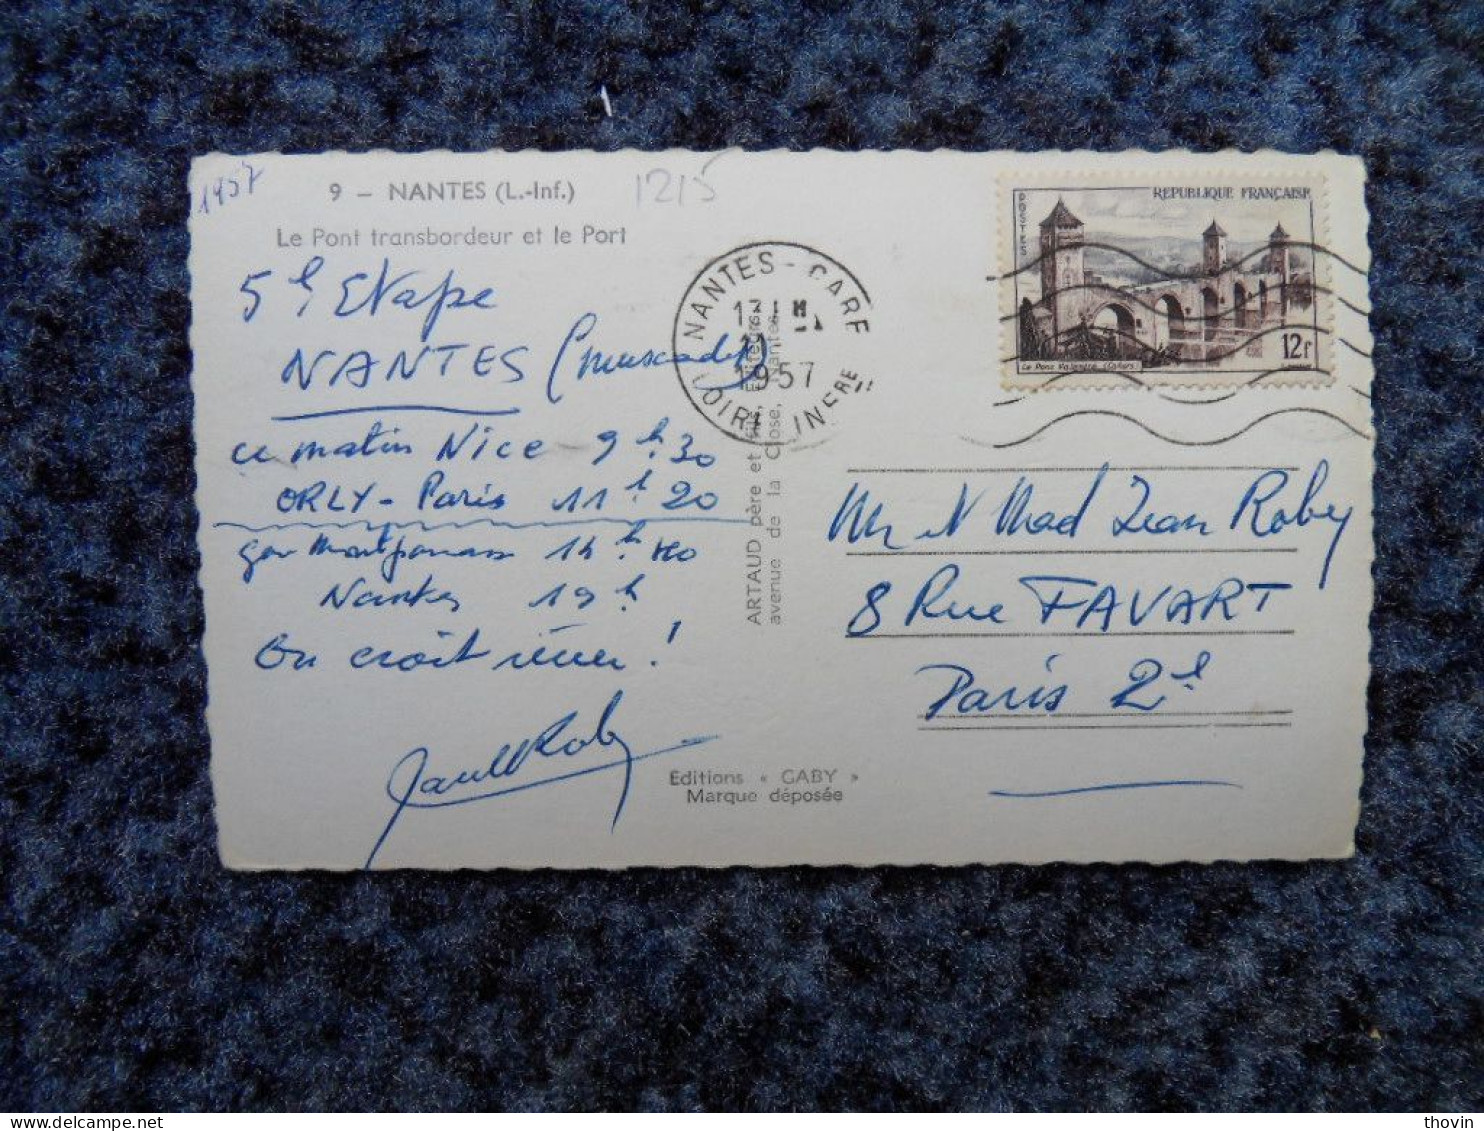 1957
9 – NANTES (L.-Inf.)
1215
Le Pont transbordeur et le Port
5e Etape
NANTES (muscadet)
ce matin Nice – 9 h 30
ORLY – Paris 11 h 20
gare Montparnasse 14 h 40
Nantes 19 h
On croit rêver !
NANTES - GARE
1957
LOIRE INFRE
ARTAUD père et fils, Editeurs
avenue de la Close, Nantes
Editions « GABY »
Marque déposée
REPUBLIQUE FRANÇAISE
POSTES
Le Pont Valentré (Cahors)
12f
Mr et Mad Jean Roby
8 Rue FAVART
Paris 2e
thovin